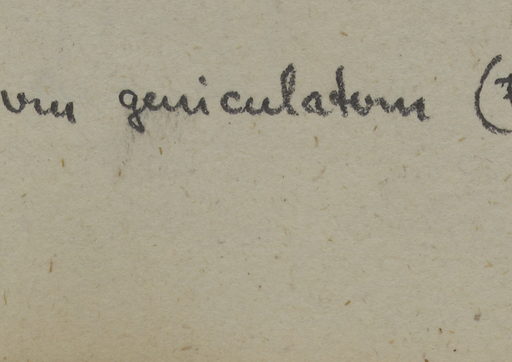 um geniculatum (